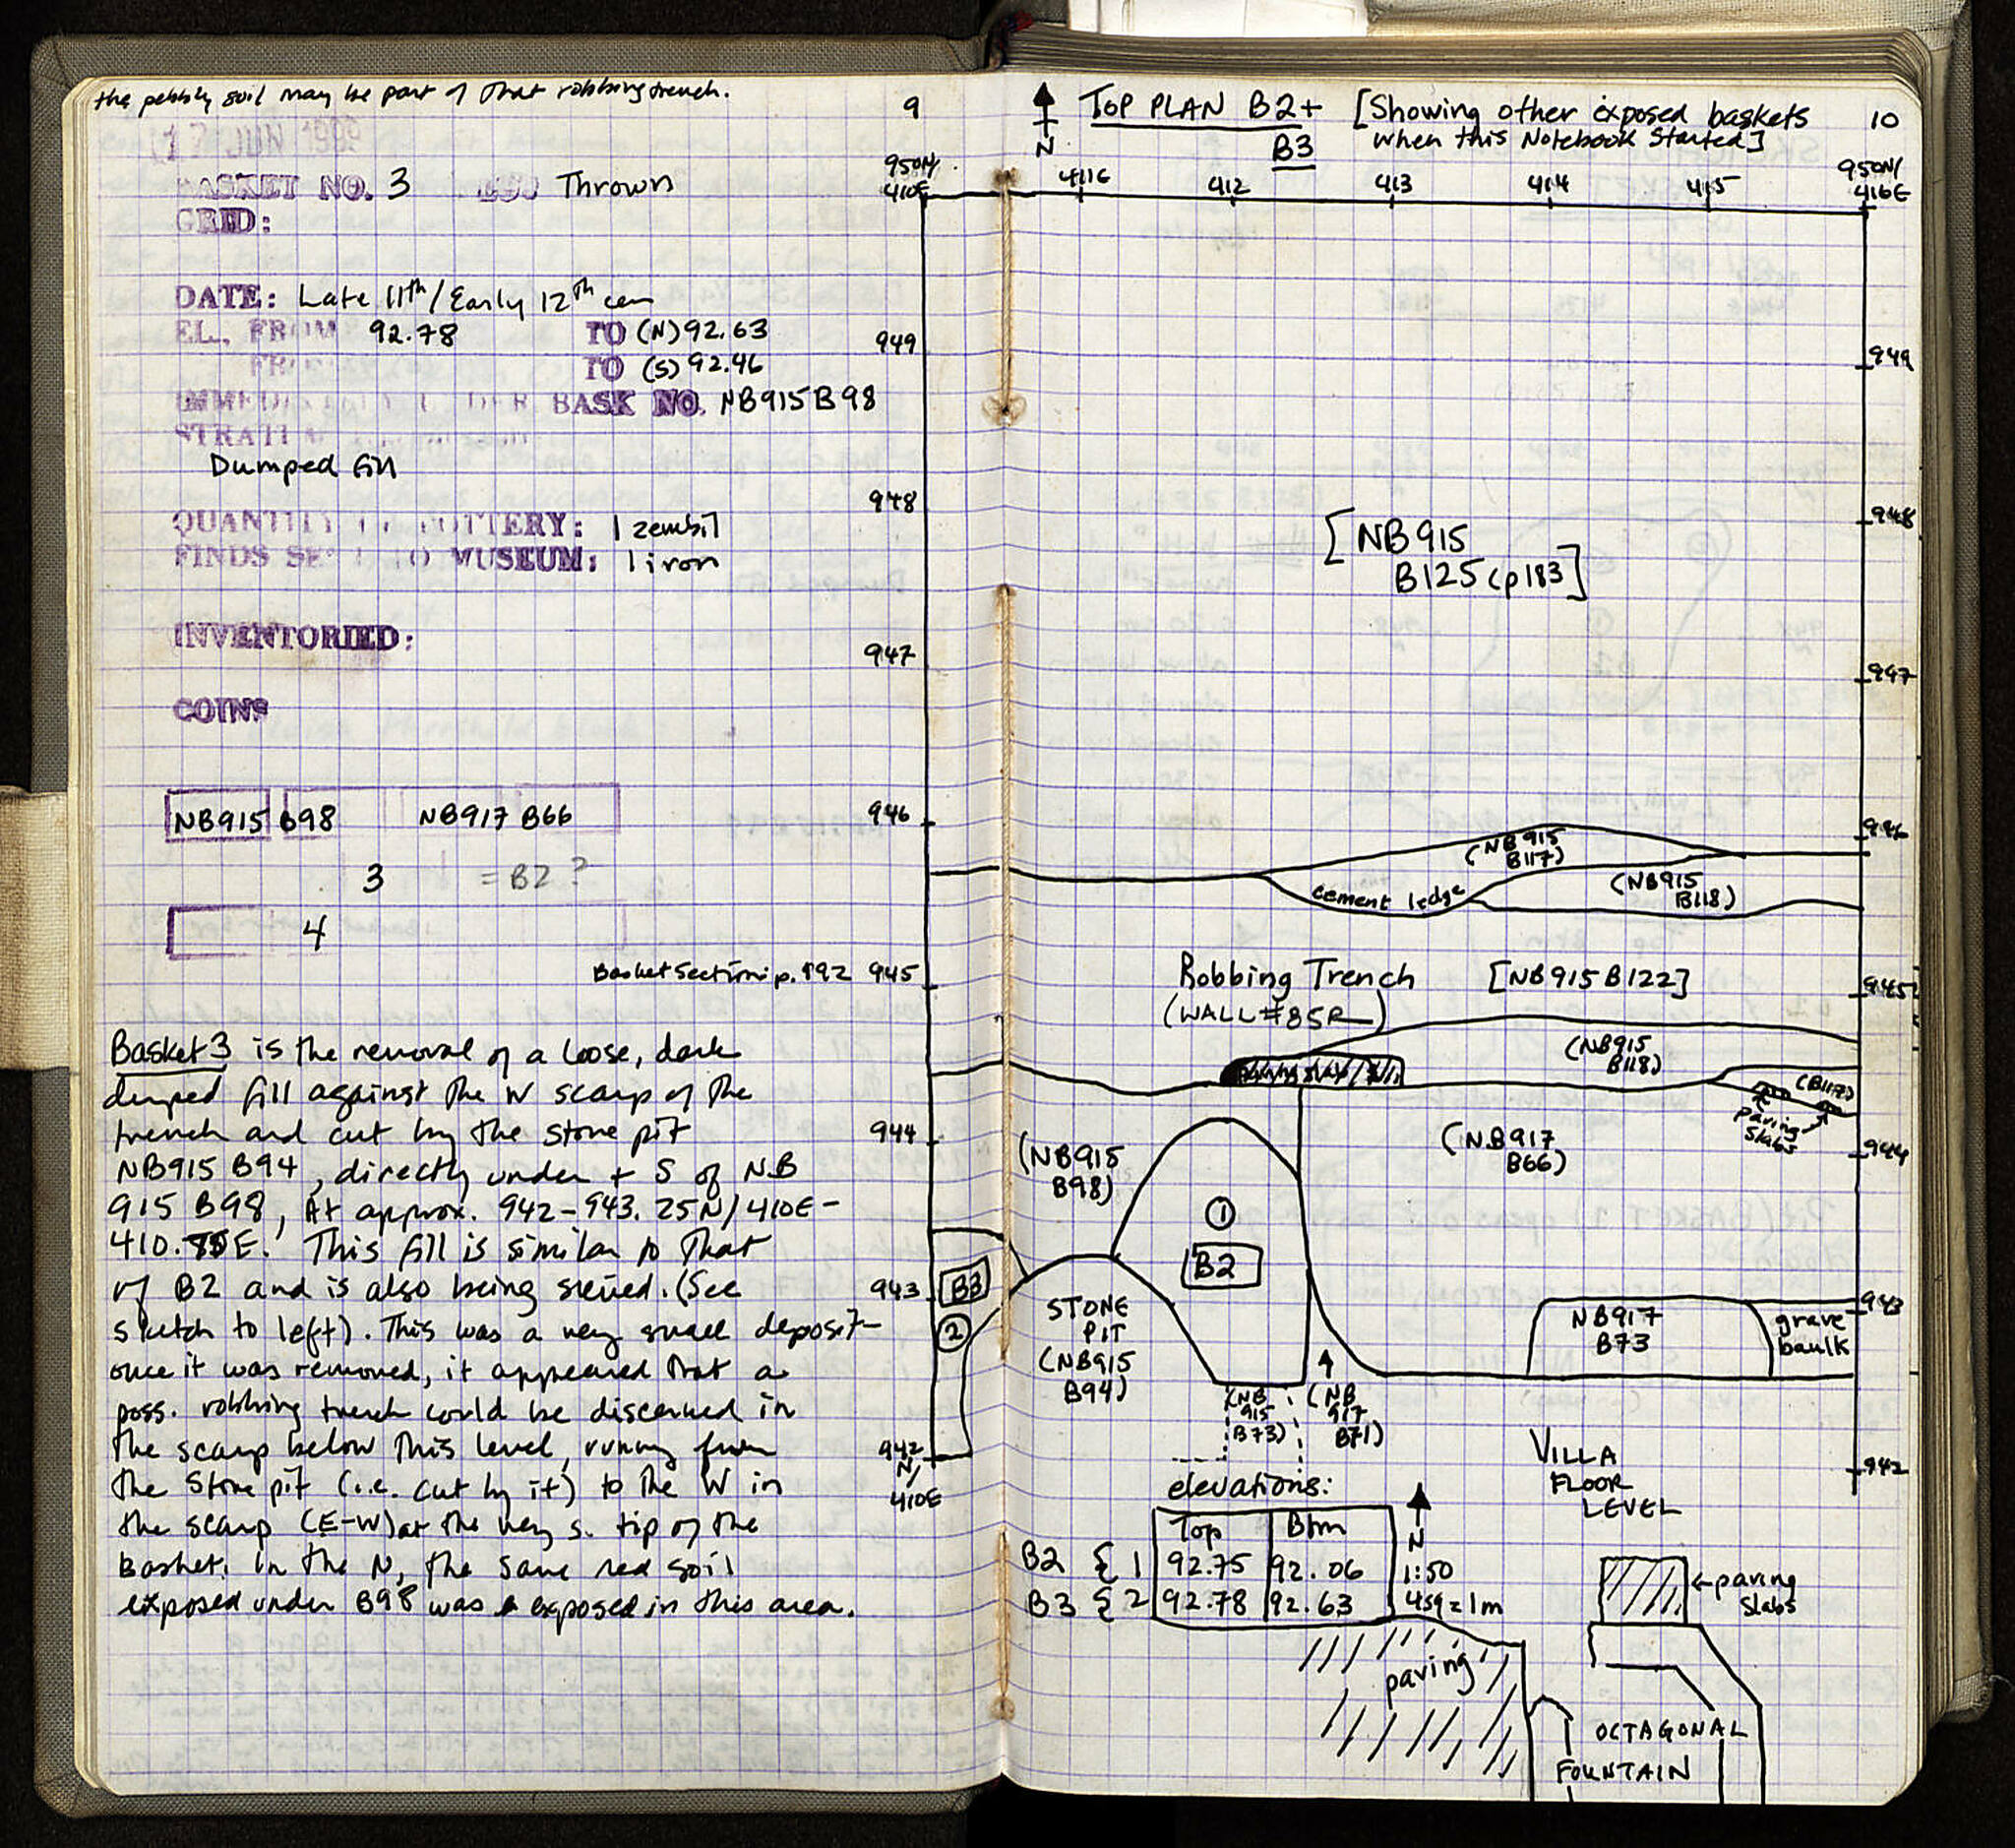 the pebbly soil may be part of that robbing trench.
9
17 JUN 1999
BASKET NO. 3 Thrown
GRID:
DATE: Late 11th/Early 12th cen
EL. FROM 92.78 TO (N) 92.63
TO (S) 92.46
IMMEDIATELY UNDER BASK NO. NB915 B98
Dumped fill
QUANTITY OF POTTERY: 1 zembil
FINDS SENT TO MUSEUM: 1 iron
INVENTORIED:
COINS
NB915 B98 NB917 B66
3 = B2?
4
Basket Section: p. 192
Basket 3 is the removal of a loose, dark
dumped fill against the W scarp of the
trench and cut by the stone pit
NB915 B94, directly under + S of NB
915 B98, At approx. 942-943.25N/410E-
This fill is similar to that
of B2 and is also being sieved. (See
sketch to left). This was a very small deposit-
once it was removed, it appeared that a
poss. robbing trench could be discerned in
the scarp below this level, running from
the stone pit (i.e. cut by it) to the W in
the scarp (E-W) at the very S. tip of the
Basket. In the N, the same red soil
exposed under B98 was exposed in this area.
N
TOP PLAN B2+
B3
[Showing other exposed baskets
when this Notebook Started]
10
950N/
410E
411E
412
413
414
415
950N/
416E
949
949
948
948
[NB915
B125 (p183]
947
947
946
946
(NB915
B117)
cement ledge
(NB915
B118)
945
945
Robbing Trench [NB915 B122]
(WALL #85R)
(NB915
B118)
(B117)
paving
slabs
944
944
(NB915
B98)
(NB917
B66)
1
B2
943
943
B3
2
STONE
PIT
(NB915
B94)
NB917
B73
grave
baulk
(NB
915
B73)
(NB
917
B71)
942
N/
410E
942
VILLA
FLOOR
LEVEL
elevations:
Top Btm
B2 { 1 92.75 92.06
B3 { 2 92.78 92.63
N
1:50
4sq=1m
paving
slabs
paving
OCTAGONAL
FOUNTAIN